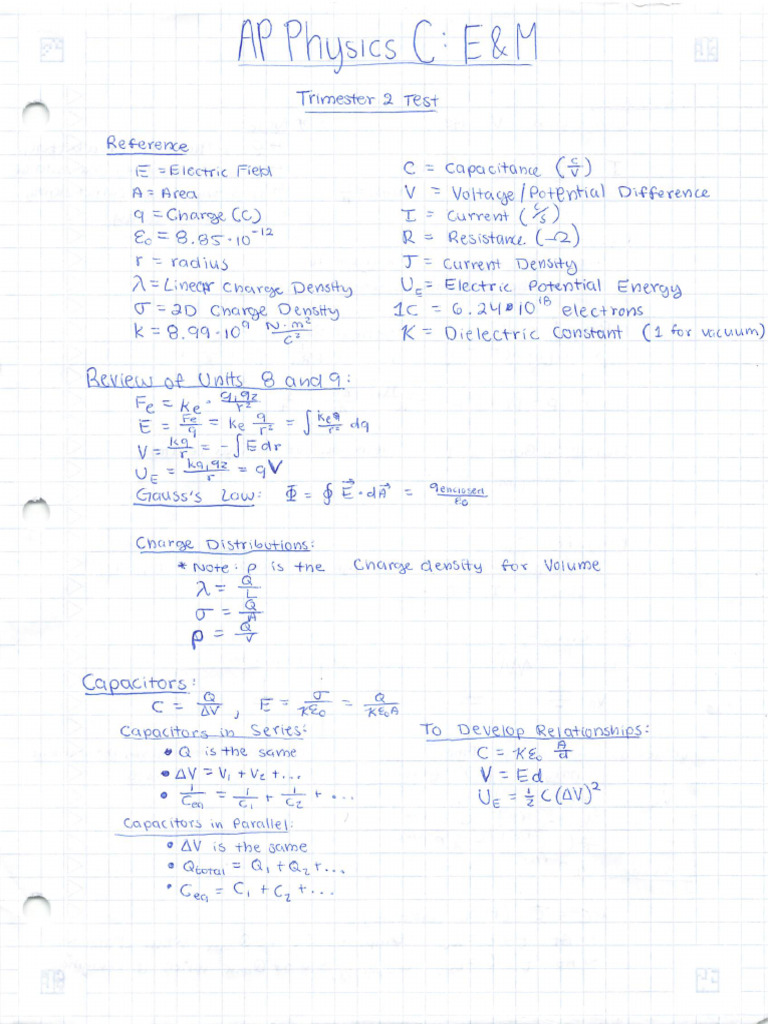 AP Physics C: E & M
Trimester 2 Test
Reference
E = Electric Field
A = Area
q = Charge (C)
ε₀ = 8.85·10⁻¹²
r = radius
λ = Linear Charge Density
σ = 2D Charge Density
k = 8.99·10⁹ N·m²/C²
C = Capacitance (C/V)
V = Voltage/Potential Difference
I = Current (C/s)
R = Resistance (Ω)
J = Current Density
U_E = Electric Potential Energy
1C = 6.24·10¹⁸ electrons
K = Dielectric Constant (1 for vacuum)
Review of Units 8 and 9:
F_e = k_e · q₁q₂/r²
E = F_e/q = k_e q/r² = ∫ k_e q/r² dq
V = kq/r = -∫ E dr
U_E = kq₁q₂/r = qV
Gauss's Law: Φ = ∮ E⃗ · dA⃗ = q_enclosed/ε₀
Charge Distributions:
* Note: ρ is the Charge density for Volume
λ = Q/L
σ = Q/A
ρ = Q/V
Capacitors:
C = Q/ΔV , E = σ/Kε₀ = Q/Kε₀A
Capacitors in Series:
• Q is the same
• ΔV = V₁ + V₂ + ...
• 1/C_eq = 1/C₁ + 1/C₂ + ...
Capacitors in Parallel:
• ΔV is the same
• Q_total = Q₁ + Q₂ + ...
• C_eq = C₁ + C₂ + ...
To Develop Relationships:
C = Kε₀ A/d
V = Ed
U_E = ½ C(ΔV)²